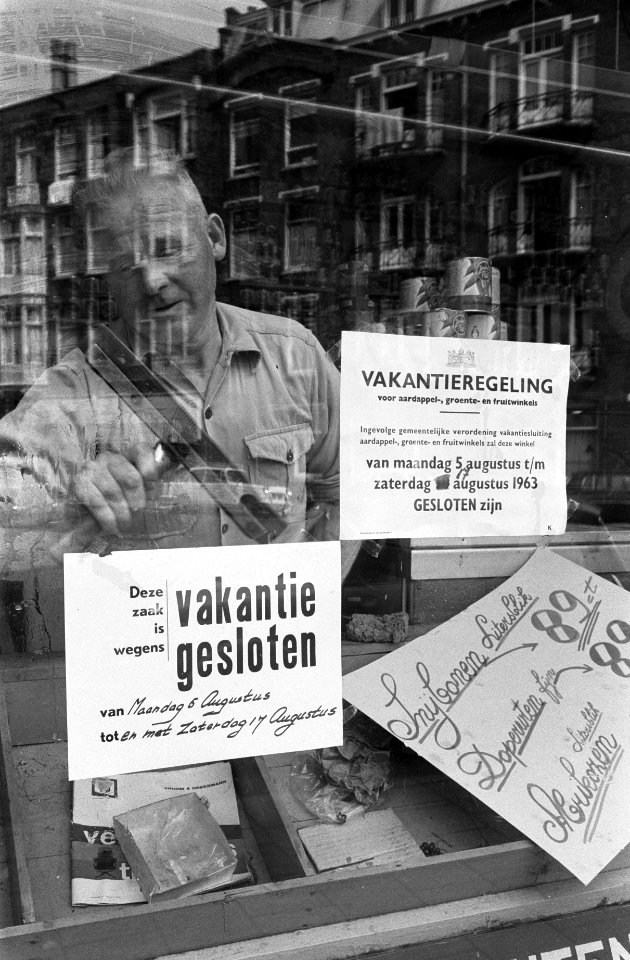 VAKANTIEREGELING
voor aardappel-, groente- en fruitwinkels
Ingevolge gemeentelijke verordening vakantiesluiting
aardappel-, groente- en fruitwinkels zal deze winkel
van maandag 5 augustus t/m
zaterdag 17 augustus 1963
GESLOTEN zijn
K.
Deze
zaak
is
wegens
vakantie
gesloten
van Maandag 5 Augustus
tot en met Zaterdag 17 Augustus
Snijbonen Literblik 89 ct
Doperwten fijn 88
VROOM & DREESMANN